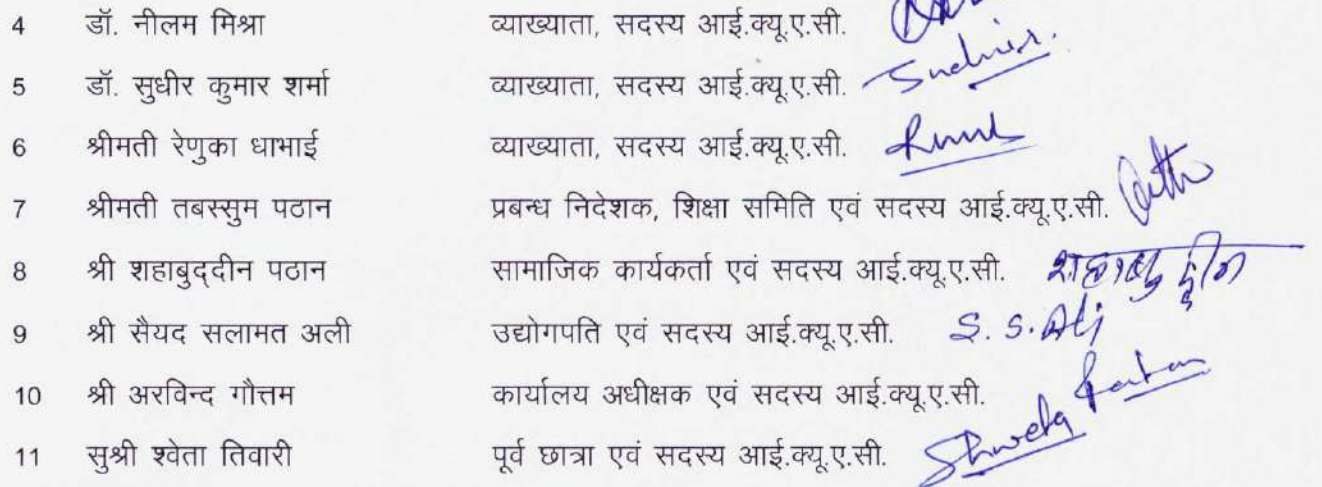 4 डॉ. नीलम मिश्रा व्याख्याता, सदस्य आई.क्यू.ए.सी.
5 डॉ. सुधीर कुमार शर्मा व्याख्याता, सदस्य आई.क्यू.ए.सी. Sudhir.
6 श्रीमती रेणुका धाभाई व्याख्याता, सदस्य आई.क्यू.ए.सी.
7 श्रीमती तबस्सुम पठान प्रबन्ध निदेशक, शिक्षा समिति एवं सदस्य आई.क्यू.ए.सी.
8 श्री शहाबुद्दीन पठान सामाजिक कार्यकर्ता एवं सदस्य आई.क्यू.ए.सी. शहाबुद्दीन
9 श्री सैयद सलामत अली उद्योगपति एवं सदस्य आई.क्यू.ए.सी. S. S. Ali
10 श्री अरविन्द गौत्तम कार्यालय अधीक्षक एवं सदस्य आई.क्यू.ए.सी.
11 सुश्री श्वेता तिवारी पूर्व छात्रा एवं सदस्य आई.क्यू.ए.सी. Shweta